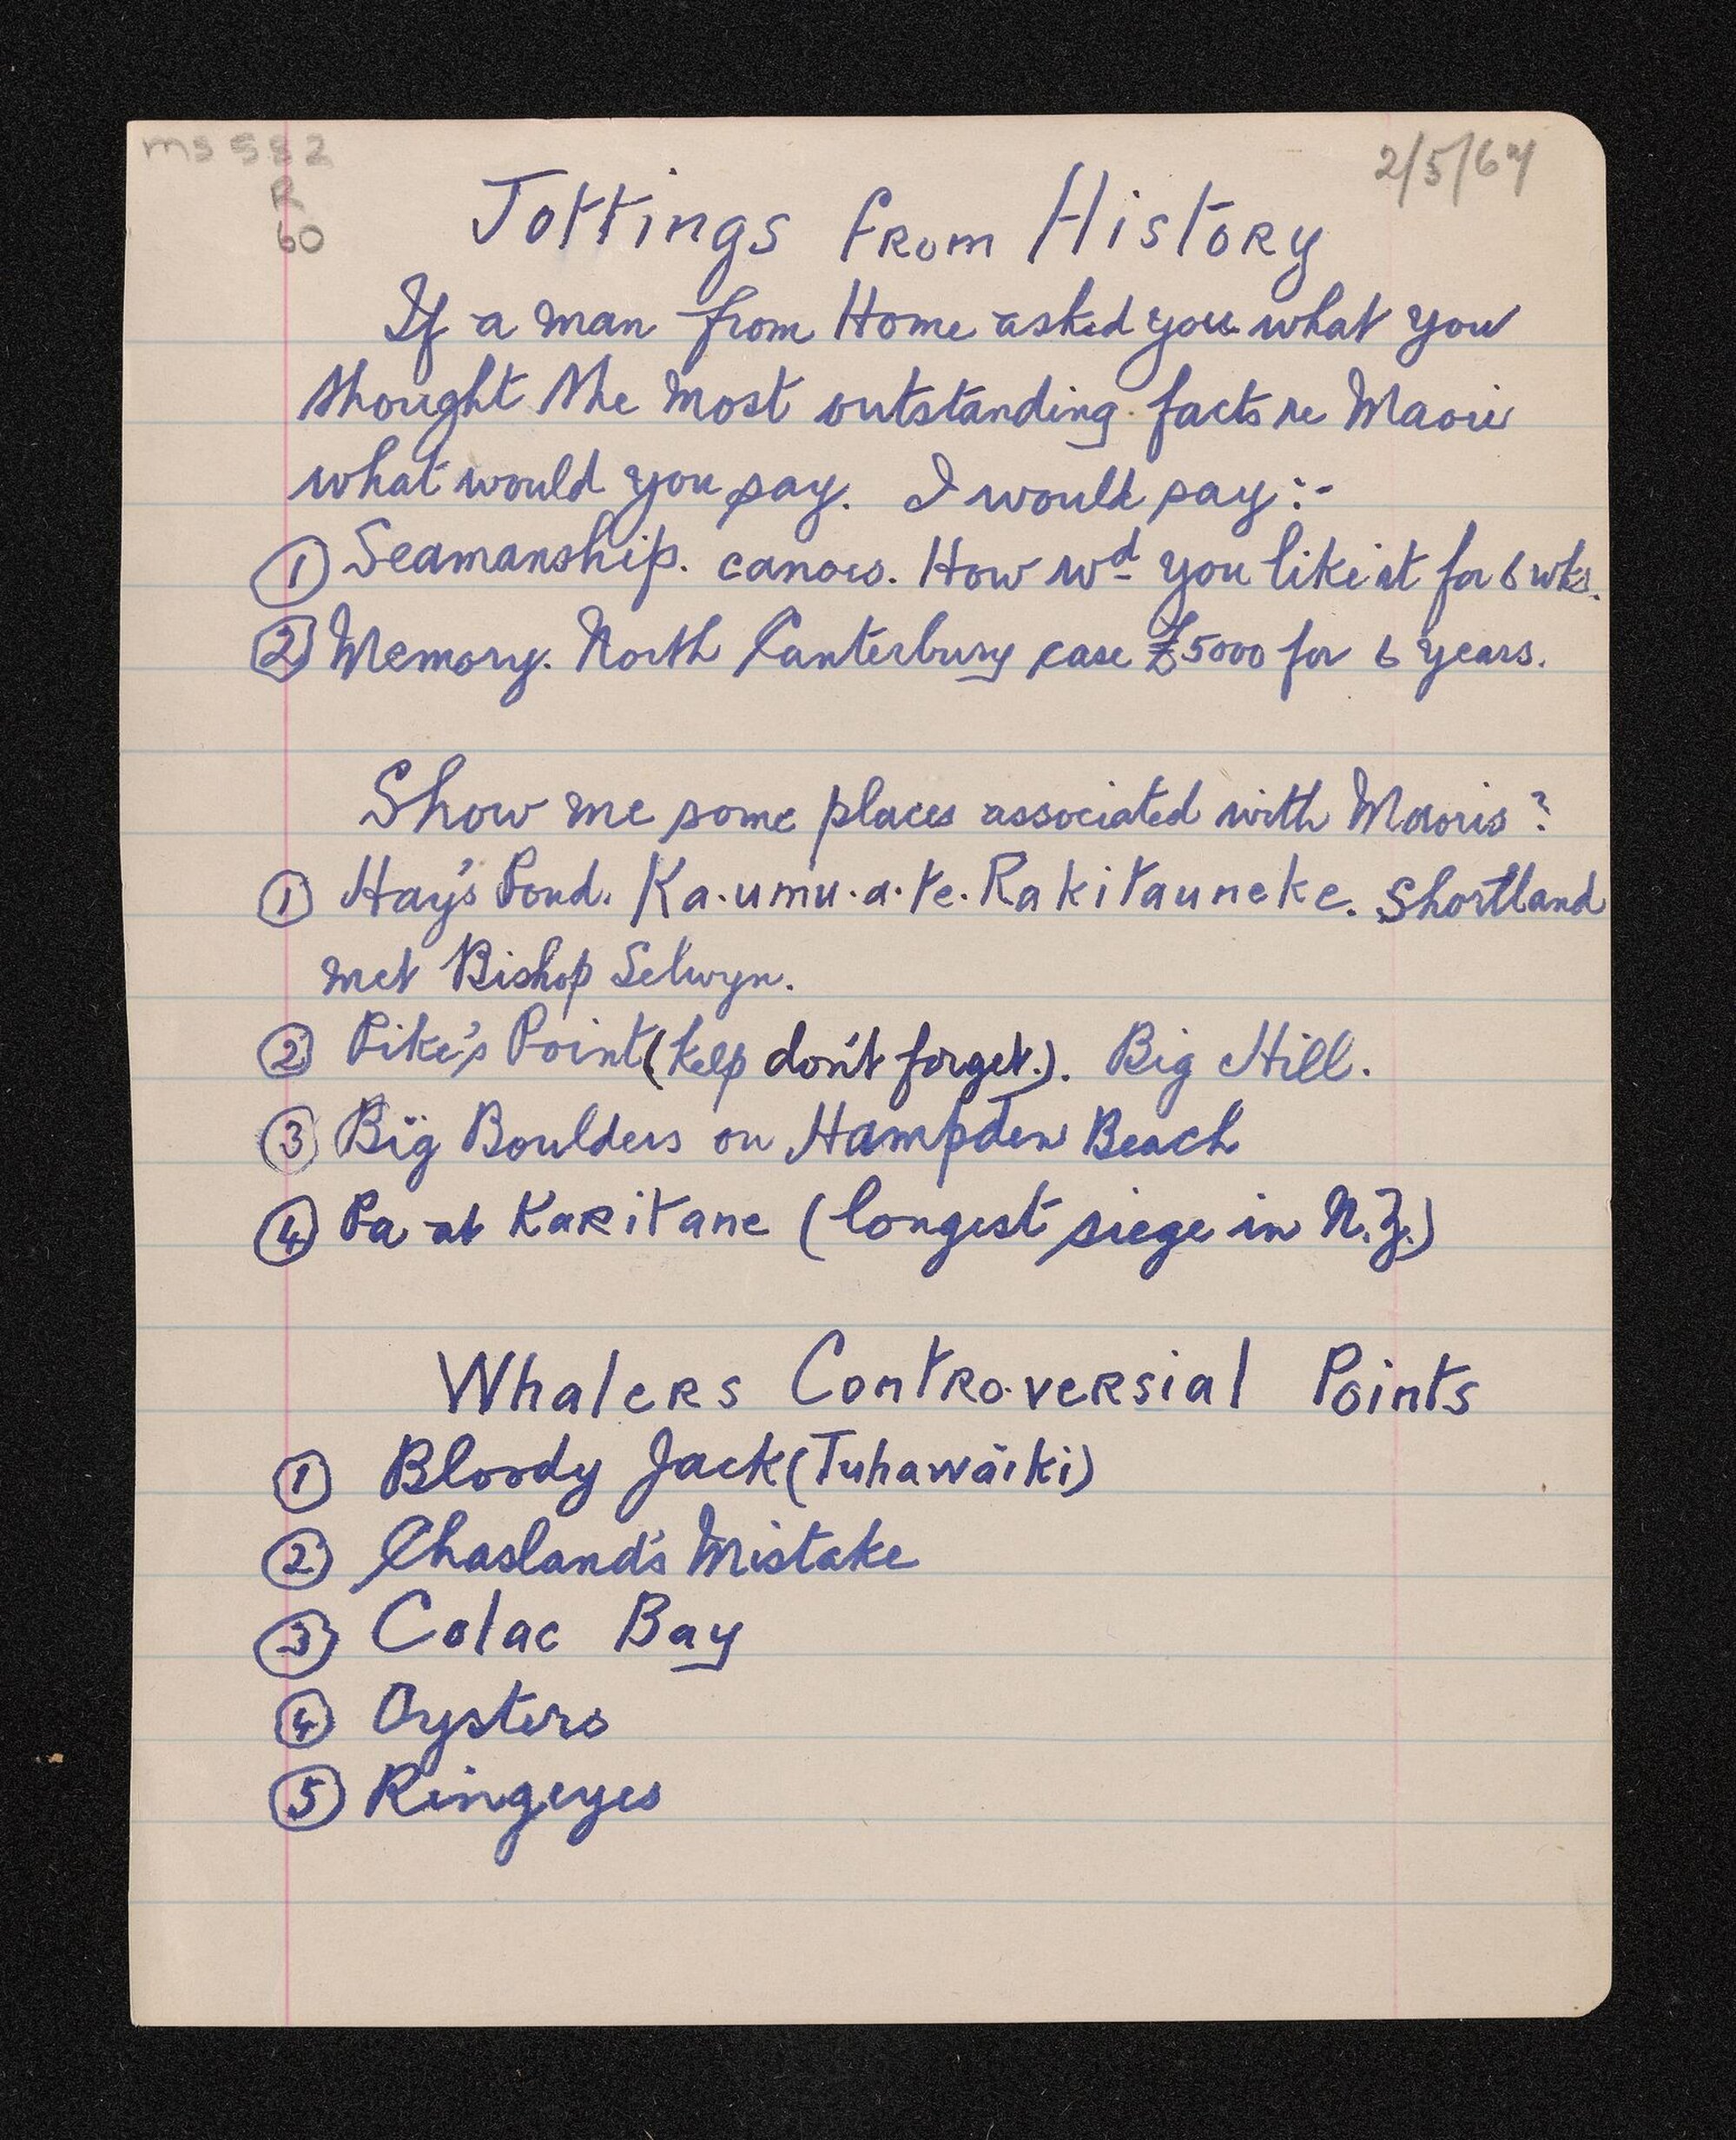 ms 582
R
60
2/5/64
Jottings from History
If a man from Home asked you what you
thought the most outstanding facts re Maori
what would you say. I would say:-
① Seamanship. canoes. How wd you like it for 6 wks.
② Memory. North Canterbury case £5000 for 6 years.
Show me some places associated with Maoris?
① Hay's Pond. Ka.umu.a.te.Rakitauneke. Shortland
met Bishop Selwyn.
② Pike's Point (kelp don't forget.). Big Hill.
③ Big Boulders on Hampden Beach
④ Pa at Karitane (longest siege in N.Z.)
Whalers Contro.versial Points
① Bloody Jack (Tuhawaiki)
② Chasland's Mistake
③ Colac Bay
④ Oysters
⑤ Ringeyes